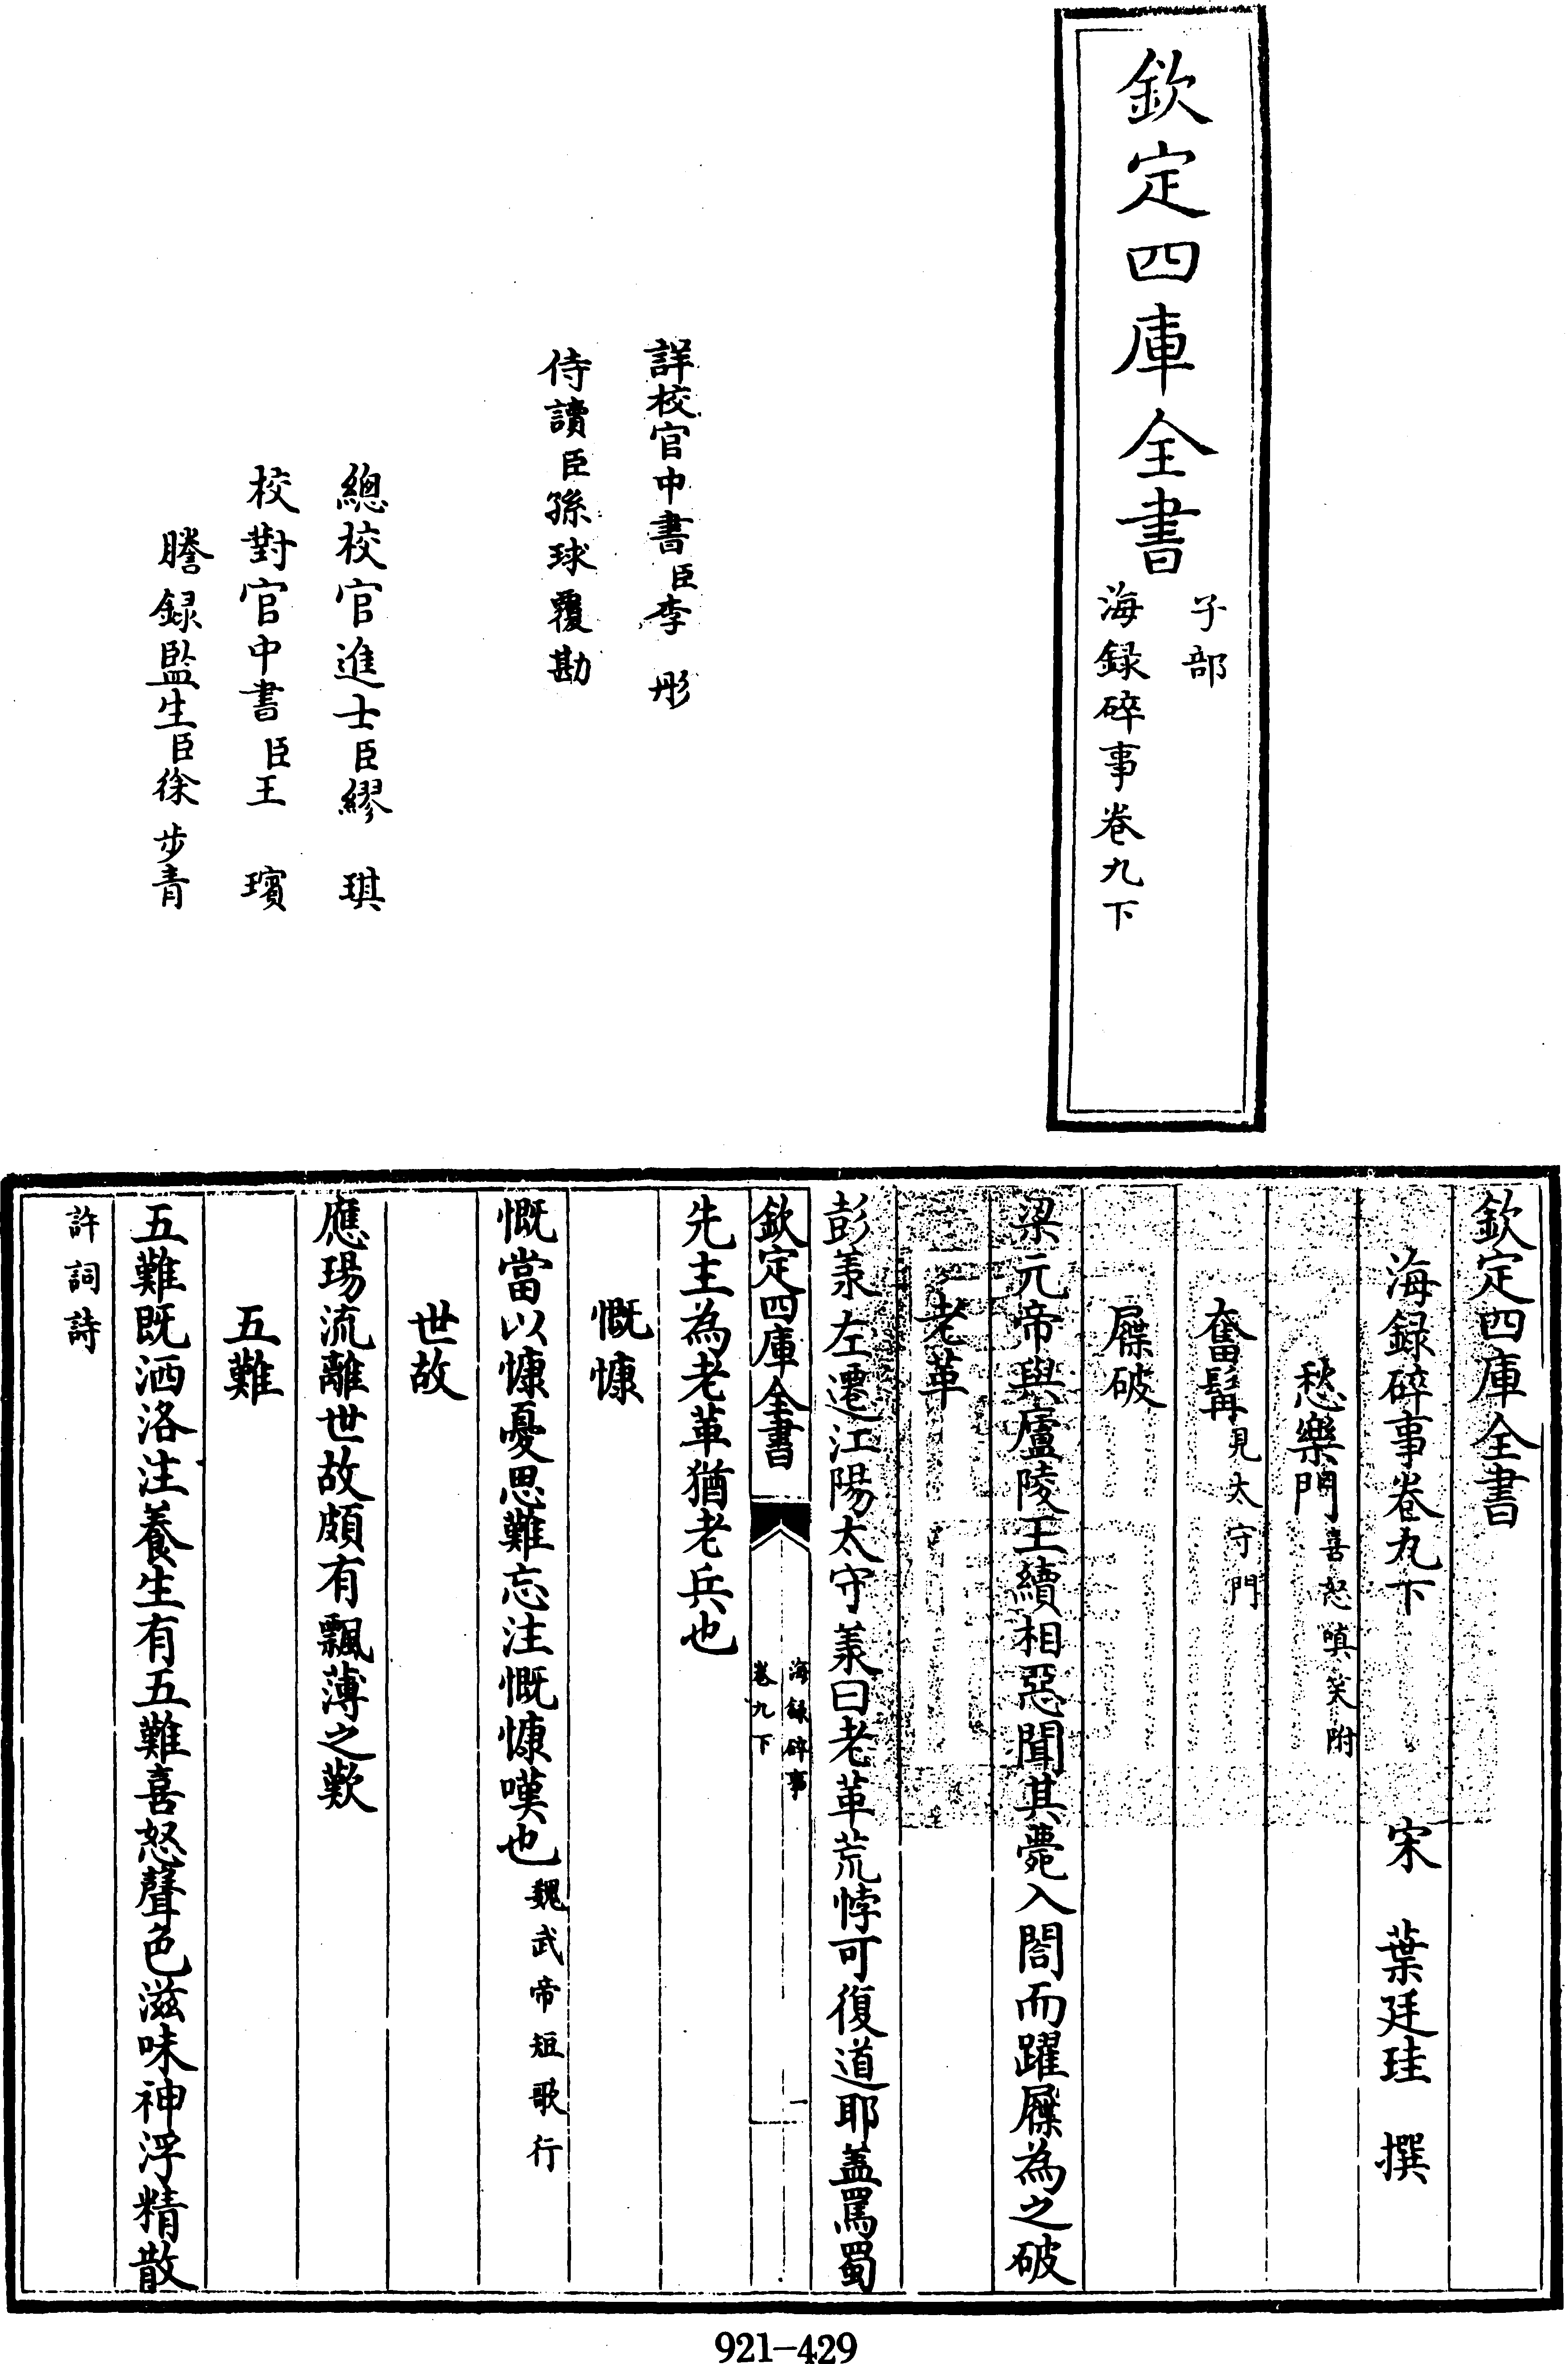 欽定四庫全書
子部
海録碎事卷九下
詳校官中書臣李彤
侍讀臣孫球覆勘
總校官進士臣繆琪
校對官中書臣王璸
謄録監生臣徐步青
欽定四庫全書
海録碎事卷九下
宋 葉廷珪 撰
愁樂門喜怒嗔笑附
奮髯見太守門
屧破
梁元帝與廬陵王續相惡聞其薨入閤而躍屧為之破
老革
彭羕左遷江陽太守羕曰老革荒悖可復道耶蓋罵蜀
欽定四庫全書
海録碎事
卷九下
一
先主為老革猶老兵也
慨慷
慨當以慷憂思難忘注慨慷嘆也魏武帝短歌行
世故
應瑒流離世故頗有飄薄之歎
五難
五難既洒洛注養生有五難喜怒聲色滋味神浮精散
許詞詩
921-429